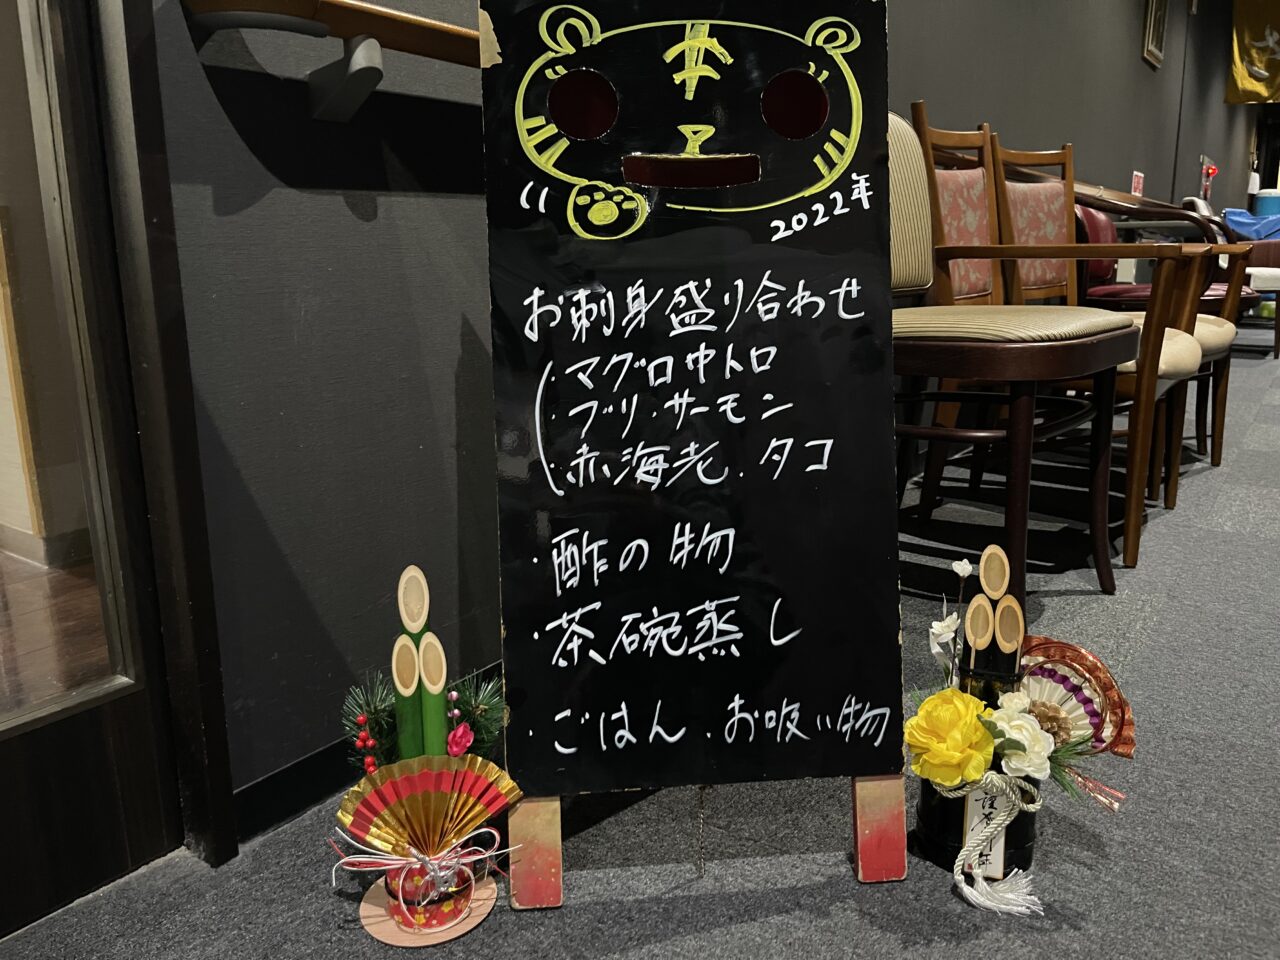 2022年
お刺身盛り合わせ
・マグロ中トロ
・ブリ・サーモン
・赤海老・タコ
・酢の物
・茶碗蒸し
・ごはん・お吸い物
謹賀新年